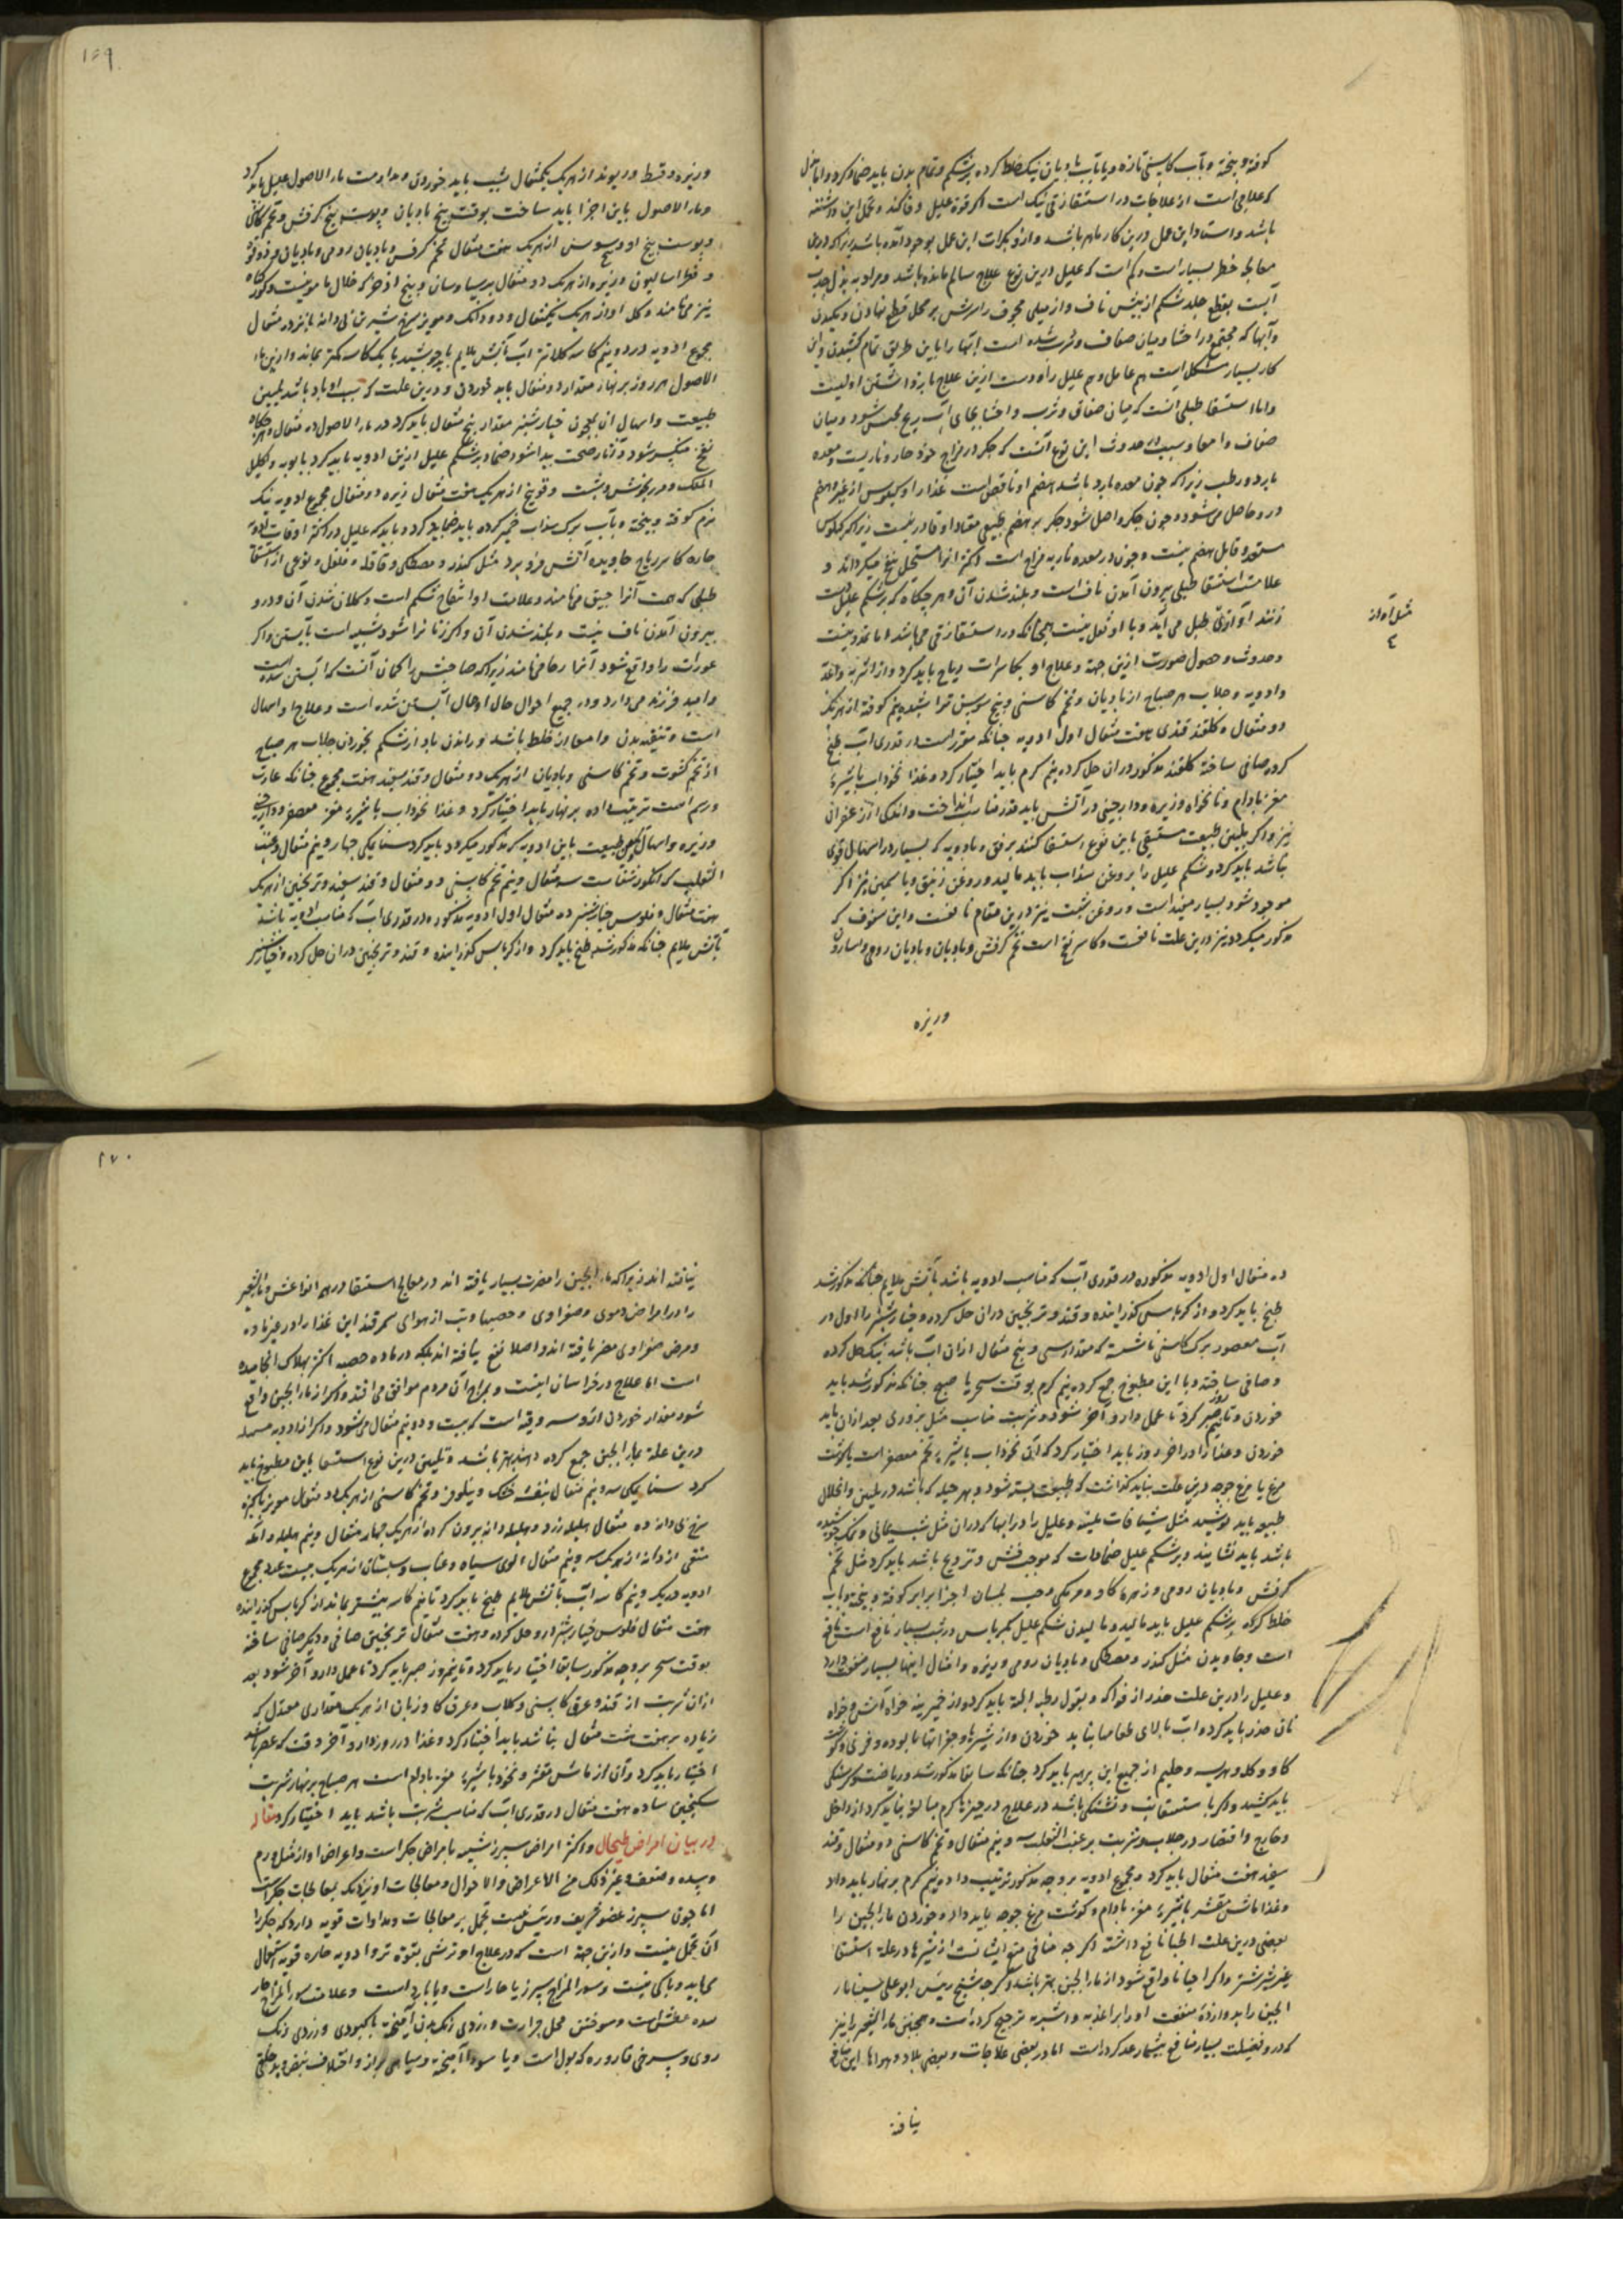 کوفته و بیخته و بآب کاسنی تازه و یا بآب بادیان نیک خلط کرده بر شکم و تمام بدن باید ضماد کرد و اما بزل
که علاجی است از علاجات در استسقا زقی نیک است اگر قوة علیل وفا کند و تحمل این داشته
باشد و استاد این عمل درین کار ماهر باشد و ازو بکرات این عمل بوجود آمده باشد زیرا که درین
معالجه خطر بسیار است و کم است که علیل درین نوع علاج سالم مانده باشد و مراد به بزل جذب
آبست بقطع جلد شکم از پیش ناف و از میلی مجوف را سرش بر محل قطع نهادن و مکیدن
و آبها که مجتمع در احشا و میان صفاق و ثرب شده است آنها را باین طریق تمام کشیدن و این
کار بسیار مشکل است هم عامل و هم علیل را و دست ازین علاج باز داشتن اولیست
و اما استسقا طبلی آنست که میان صفاق و ثرب و احشا بجای آب ریح محتبس شود و میان
صفاق و امعا و سبب حدوث این نوع آنست که جگر در مزاج خود حار و ناریست و معده
بارد و رطب زیرا که چون معده بارد باشد هضم او ناقص است غذا را و کیلوس از غیر هضم
درو حاصل می شود و چون بجگر واصل شود جگر بر هضم طبیعی معتاد او قادر نیست زیرا که کیلوس
مستعد و قابل هضم نیست و چون در معده ناریه مزاج است اکثر آنرا مستحیل بنفخ میگرداند و
علامت استسقا طبلی بیرون آمدن ناف است و بلند شدن آن و هر چگاه که بر شکم علیل دست
زنند آوازی طبل می آید و با او ثقل نیست همچنانکه در استسقا زقی می باشد اما تمدد نیست
مثل آواز
و حدوث و حصول صورت ازین جهة و علاج او بکاسرات ریاح باید کرد و از اشربه و اغذیه
و ادویه و جلاب هر صباح از بادیان و تخم کاسنی و بیخ سوسن تراشیده نیم کوفته از هریک
دو مثقال و گلقند قندی هفت مثقال اول ادویه چنانکه مقرر است در قدری آب طبخ
کرده صافی ساخته گلقند مذکور در آن حل کرده نیم گرم باید اختیار کرد و غذا نخوداب با شیرۀ
مغز بادام و نانخواه و زیره و دارچینی در آتش باید قدر مناسب انداخت و اندکی از زعفران
نیز و اگر تلیین طبیعت مستسقی باین نوع استسقا کنند برفق و بادویه که بسیار در اسهال قوی
نباشد باید کرد و شکم علیل را بروغن سداب باید مالید و روغن زنبق و یاسمین نیز اگر
موجود شود بسیار مفید است و روغن شبت نیز درین مقام نافعست و این سفوف که
مذکور میگردد نیز درین علت نافعست و کاسر نفخ است تخم کرفس و بادیان و بادیان رومی و اسارون
وزیره
۱۶۹
وزیره و قسط و ریوند از هریک یکمثقال بشب باید خوردن و مداومت ماء الاصول علیل باید کرد
و ماء الاصول باین اجزا باید ساخت بوقت بیخ بادیان و پوست بیخ کرفس و تخم کاسنی
و پوست بیخ او و سوسن از هریک هفت مثقال تخم کرفس و بادیان رومی و بادیان و دوقو
و فطراسالیون و زیره از هریک دو مثقال پرسیاوسان و بیخ اذخر که خلال مامونیست
نیز می نامند و گل او از هریک پنجمثقال و دو دانگ و مویز سرخ شیرین بی دانه پانزده مثقال
مجموع ادویه در دو نیم کاسه کلان تر آب بآتش ملایم باید جوشید تا یک کاسه کمتر بماند و ازین ماء
الاصول هر روز بر نهار مقدار ده مثقال باید خوردن و درین علت که سبب او باد باشد تلیین
طبیعت و اسهال آن بمعجون خیارشنبر مقدار پنج مثقال باید کرد در ماء الاصول ده مثقال و هرگاه
نفخ منکسر شود و آثار صحت پیدا شود ضماد بر شکم علیل ازین ادویه باید کرد بابونه و اکلیل
الملک و مرزنجوش و شبت و فوتنج از هریک هفت مثقال زیره دو مثقال مجموع ادویه نیک
نرم کوفته و بیخته و بآب برگ سداب خمیر کرده باید ضماد کرد و باید که علیل در اکثر اوقات ادویه
حاره کاسر ریاح جاویده آبش فرو برد مثل کندر و مصطکی و قاقله و فلفل و نوعی از استسقا
طبلی که هست آنرا حبن می نامند و علامت او انتفاخ شکم است و کلان شدن آن و درو
بیرون آمدن ناف نیست و بلند شدن آن و اگر زنانرا شود شبیه است بآبستن و اگر
عورات را واقع شود آنرا رجا می نامند زیرا که صاحبش را گمان آنست که آبستن شده است
و امید فرزند می دارد و در جمیع احوال حال او حال آبستن شده است و علاج او اسهال
است و تنقیه بدن و امعا از خلط باشد و راندن باد از شکم بخوردن جلاب هر صباح
از تخم کشوث و تخم کاسنی و بادیان از هریک دو مثقال و قند سفید هفت مجموع چنانکه عادت
و رسم است ترتیب داده بر نهار باید اختیار کرد و غذا نخوداب با شیرۀ مغز معصفر و دارچینی
و زیره و اسهال طبیعت باین ادویه که مذکور میگردد باید کرد سنا مکی چهار و نیم مثقال و عنب
الثعلب که انگور شفاست سه مثقال و نیم تخم کاسنی دو مثقال و قند سفید و ترنجبین از هریک
هفت مثقال و فلوس خیارشنبر ده مثقال اول ادویه مذکوره در قدری آب که مناسب ادویه باشد
بآتش ملایم چنانکه مذکور شد طبخ باید کرد و از کرباس گذرانیده و قند و ترنجبین در آن حل کرده و خیارشنبر
ده مثقال اول ادویه مذکوره در قدری آب که مناسب ادویه باشد بآتش ملایم چنانکه مذکور شد
طبخ باید کرد و از کرباس گذرانیده و قند و ترنجبین در آن حل کرده و خیارشنبر را اول در
آب معصور برگ کاسنی ناشسته که مقدار سی و پنج مثقال ازان آب باشد نیک حل کرده
و صافی ساخته و با این مطبوخ جمع کرده نیم گرم بوقت سحر یا صبح چنانکه مذکور شد باید
خوردن و تا نیم روز صبر کرد تا عمل دارو آخر شود و شربت مناسب مثل بزوری بعد ازان باید
خوردن و غذا را در آخر روز باید اختیار کرد که آن نخوداب با شیرۀ تخم معصفر است یا گوشت
مرغ یا مرغ جوجه و درین علت نباید گذاشت که طبیعت بسته شود و بهر حیله که باشد در تلیین و انحلال
طبیعة باید کوشید مثل شیافات ملینه و علیل را در آبها که در آن مثل شب یمانی و نمک جوشیده
باشد باید نشانید و بر شکم علیل ضمادات که موجب فش و ترویح باشد باید کرد مثل تخم
کرفس و بادیان رومی و زهرۀ گاو و مر مکی و حب بلسان اجزا برابر کوفته و بیخته و بآب
خلط کرده بر شکم علیل باید مالید و مالیدن شکم علیل بکرباس درشت بسیار نافع است نافع
است و جاویدن مثل کندر و مصطکی و بادیان رومی و زیره و امثال اینها بسیار منفعت دارد
و علیل را درین علت حذر از فواکه و بقول رطبه البتة باید کرد و از خمیرینه خواه آش و خواه
نان حذر باید کرد و آب بالای طعامها نباید خوردن و از شیرها و جغراتها و پالوده و فرنی و گوشت
گاو و کله و هریسه و حلیم از جمیع این پرهیز باید کرد چنانکه سابقا مذکور شد و ریاضت و گرسنگی
باید کشید و اگر با استسقا تب و تشنگی باشد در علاج در چیزهاء گرم مبالغه نباید کرد از داخل
و خارج و اقتصار در جلاب و شربت بر عنب الثعلب سه و نیم مثقال و تخم کاسنی دو مثقال و قند
سفید هفت مثقال باید کرد و مجموع ادویه بر وجه مذکور ترتیب داده نیم گرم بر نهار باید داد
و غذا ماش مقشر با شیرۀ مغز بادام و گوشت مرغ جوجه باید داد و خوردن ماء الجبن را
بعضی درین علت اطبا نافع داشته اگرچه منافی منع ایشانست از شیرها در علة استسقا
بغیر شیر شتر و اگر احیانا واقع شود از ماء الجبن بهتر باشد و اگرچه شیخ رئیس ابو علی سینا ماء
الجبن را بدو ازدۀ منفعت او را بر اغذیه و اشربه ترجیح کرده است و همچنین ماء الشعیر را نیز
که درو فضیلت بسیار منافع بیشمار عد کرده است اما در بعضی علاجات و بعضی بلاد و هواها این منافع
نیافته
۱۷۰
نیافته اند زیرا که ماء الجبن را مضرت بسیار یافته اند در معالجۀ استسقا در همه انواعش و ماء الشعیر
را در امراض دموی و صفراوی و حصبها و تب از هوای سمرقند این غذا را در غیر ماده
و مرض صفراوی مضر یافته اند و اصلا نفع نیافته اند بلکه در ماده حصبه اکثر بهلاک انجامیده
است اما علاج در خراسان اینست و بمزاج آن مردم موافق می افتد و اگر از ماء الجبن واقع
شود مقدار خوردن ازو سه وقیه است که بیست و دو نیم مثقال می شود و اگر از ادویه مسهله
درین علة بماء الجبن جمع کرده دهند بهتر باشد و تلیین درین نوع استسقا باین مطبوخ باید
کرد سنا مکی سه و نیم مثقال بنفشه خشک و نیلوفر و تخم کاسنی از هریک دو مثقال مویز پاکیزه
سرخ بی دانه ده مثقال هلیله زرد و هلیله دانه بیرون کرده از هریک چهار مثقال و نیم هلیله و آمله
منقی از دانه از هریک سه و نیم مثقال الوی سیاه و عناب و سپستان از هریک بیست عدد مجموع
ادویه در یک و نیم کاسه آب بآتش ملایم طبخ باید کرد تا نیم کاسه بیشتر بماند از کرباس گذرانیده
هفت مثقال فلوس خیارشنبر درو حل کرده و هفت مثقال ترنجبین صافی و دیگر صافی ساخته
بوقت سحر بر وجه مذکور سابقا اختیار باید کرد و تا نیم روز صبر باید کرد تا عمل دارو آخر شود بعد
ازان شربت از قند و عرق کاسنی و گلاب و عرق گاوزبان از هریک مقداری معتدل که
زیاده بر هفت هشت مثقال نباشد باید اختیار کرد و غذا در روز دارو آخر وقت که عصر باشد
اختیار باید کرد و آن از ماش مقشر و نخود با شیرۀ مغز بادام است هر صباح بر نهار شربت
سکنجبین ساده هفت مثقال در قدری آب که مناسب شربت باشد باید اختیار کرد مقاله
در بیان امراض طحال و اکثر امراض سپرز شبیه بامراض جگر است و اعراض او از مثل ورم
و سده و ضعف و غیر ذلک من الاعراض و الاحوال و معالجات او نزدیک بمعالجات جگر است
اما چون سپرز عضو شریف و رئیس نیست تحمل بر معالجات و مداوات قویه دارد که جگر را
آن تحمل نیست و ازین جهة است که در علاج او ترشی بقوة تر و ادویه حاره قویه استعمال
می یابد و باکی نیست و سوء المزاج سپرز یا حار است و یا بارد است و علامت سوء المزاج حار
سده عطش است و سوختن محل حرارت و زردی رنگ بدن آمیخته با کبودی و زردی رنگ
روی و سرخی قاروره که بول است و یا سودا آمیخته و سیاهی براز و اختلاف نبض و بدخلقی